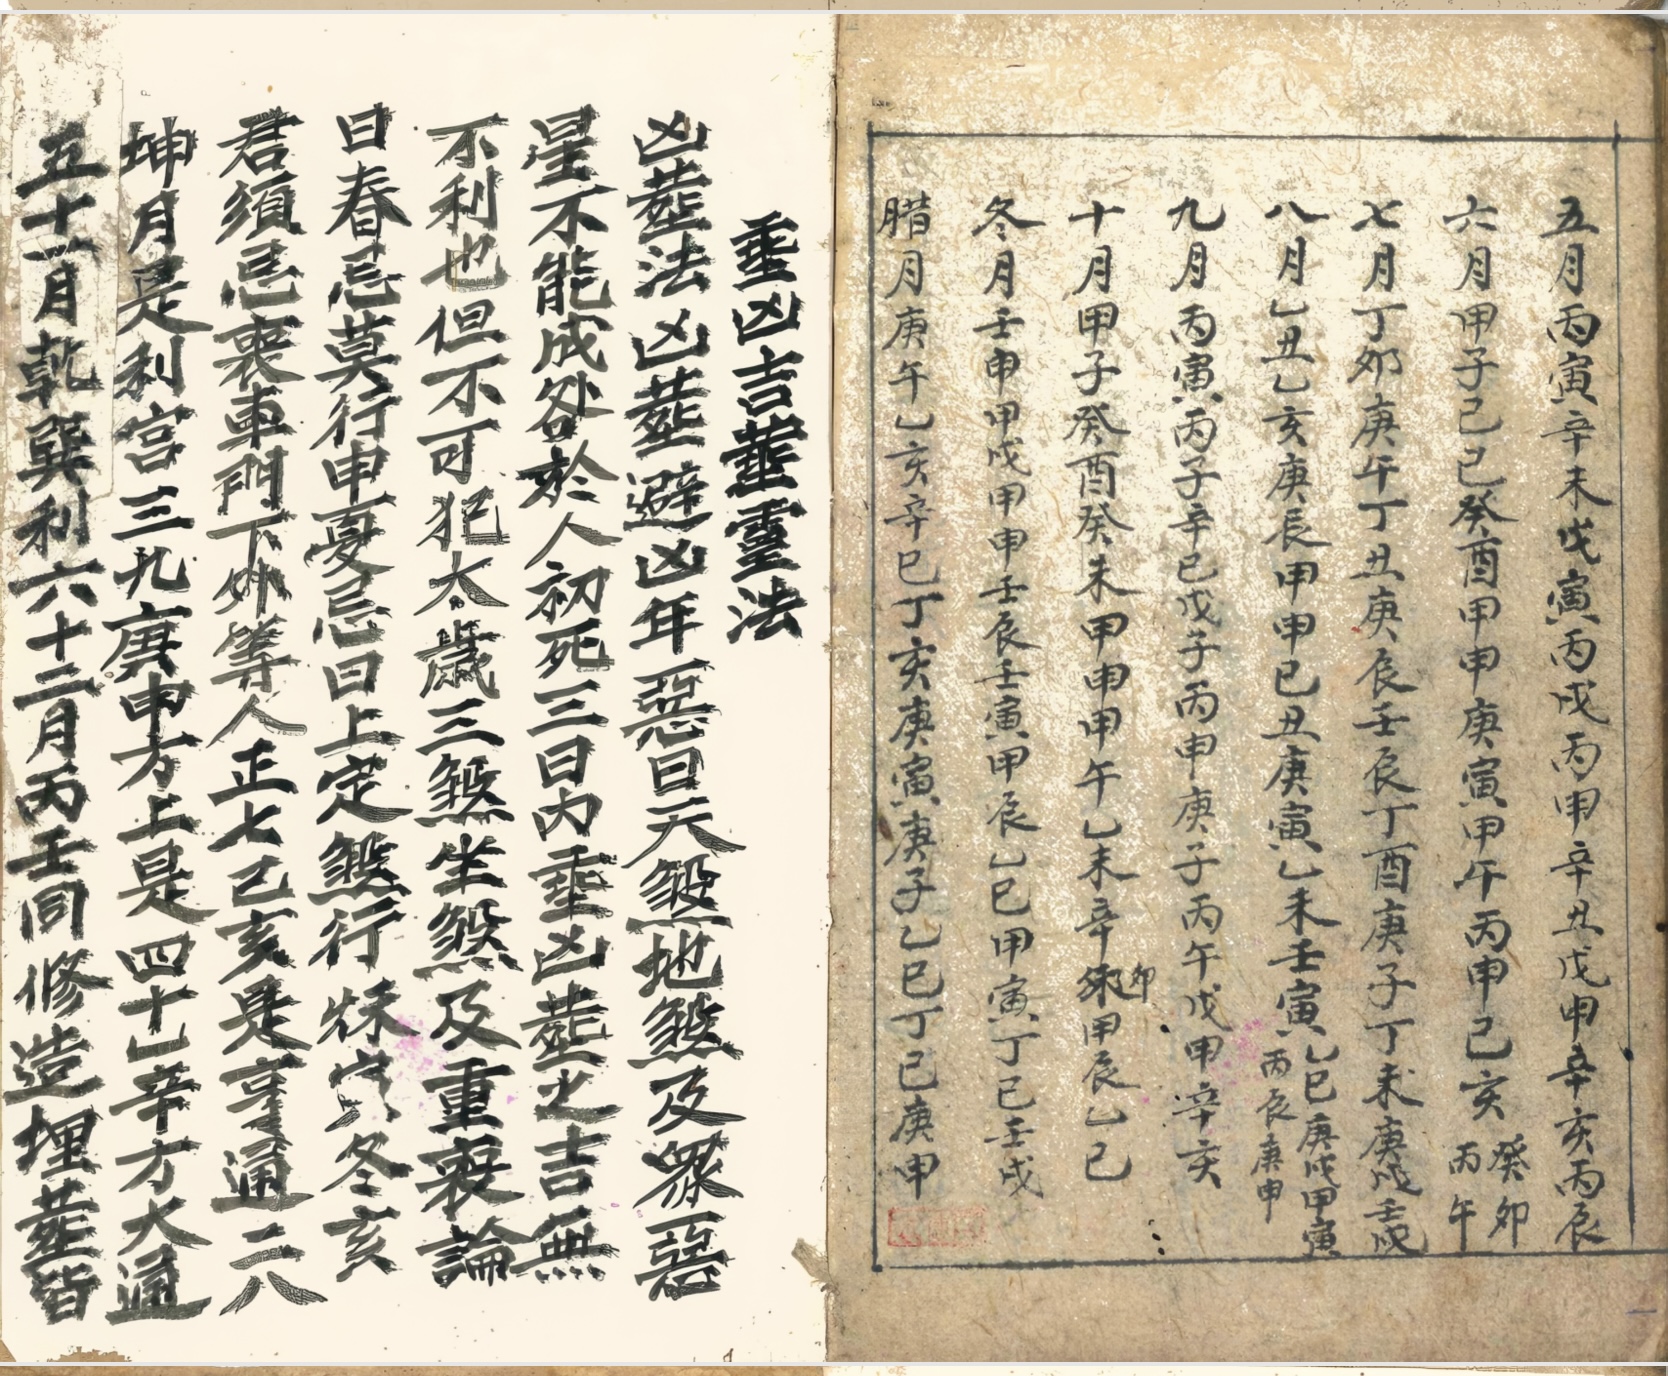 五月丙寅辛未戊寅丙戌丙申辛丑戊申辛亥丙辰
六月甲子己巳癸酉甲申庚寅甲午丙申己亥癸卯丙午
七月丁卯庚午丁丑庚辰壬辰丁酉庚子丁未庚戌壬戌
八月乙丑乙亥庚辰甲申己丑庚寅乙未壬寅乙巳庚戌甲寅丙辰庚申
九月丙寅丙子辛巳戊子丙申庚子丙午戊申辛亥
十月甲子癸酉癸未甲申甲午乙未辛卯甲辰乙巳
冬月壬申甲戌甲申壬辰壬寅甲辰乙巳甲寅丁巳壬戌
腊月庚午乙亥辛巳丁亥庚寅庚子乙巳丁巳庚申
乗凶吉葬灵法
凶葬法凶葬避凶年惡日天煞地煞及眾惡
星不能成殃於人初死三日内乗凶葬之吉無
不利也但不可犯太歲三煞坐煞及重喪論
日春忌莫行申夏忌日上定煞行秌冬亥
君須忌喪車門下外等人正七己亥是亨通二八
坤月是利宫三九庚申方上是四十乙辛方大通
五十一月乾巽利六十二月丙壬同修造埋葬皆